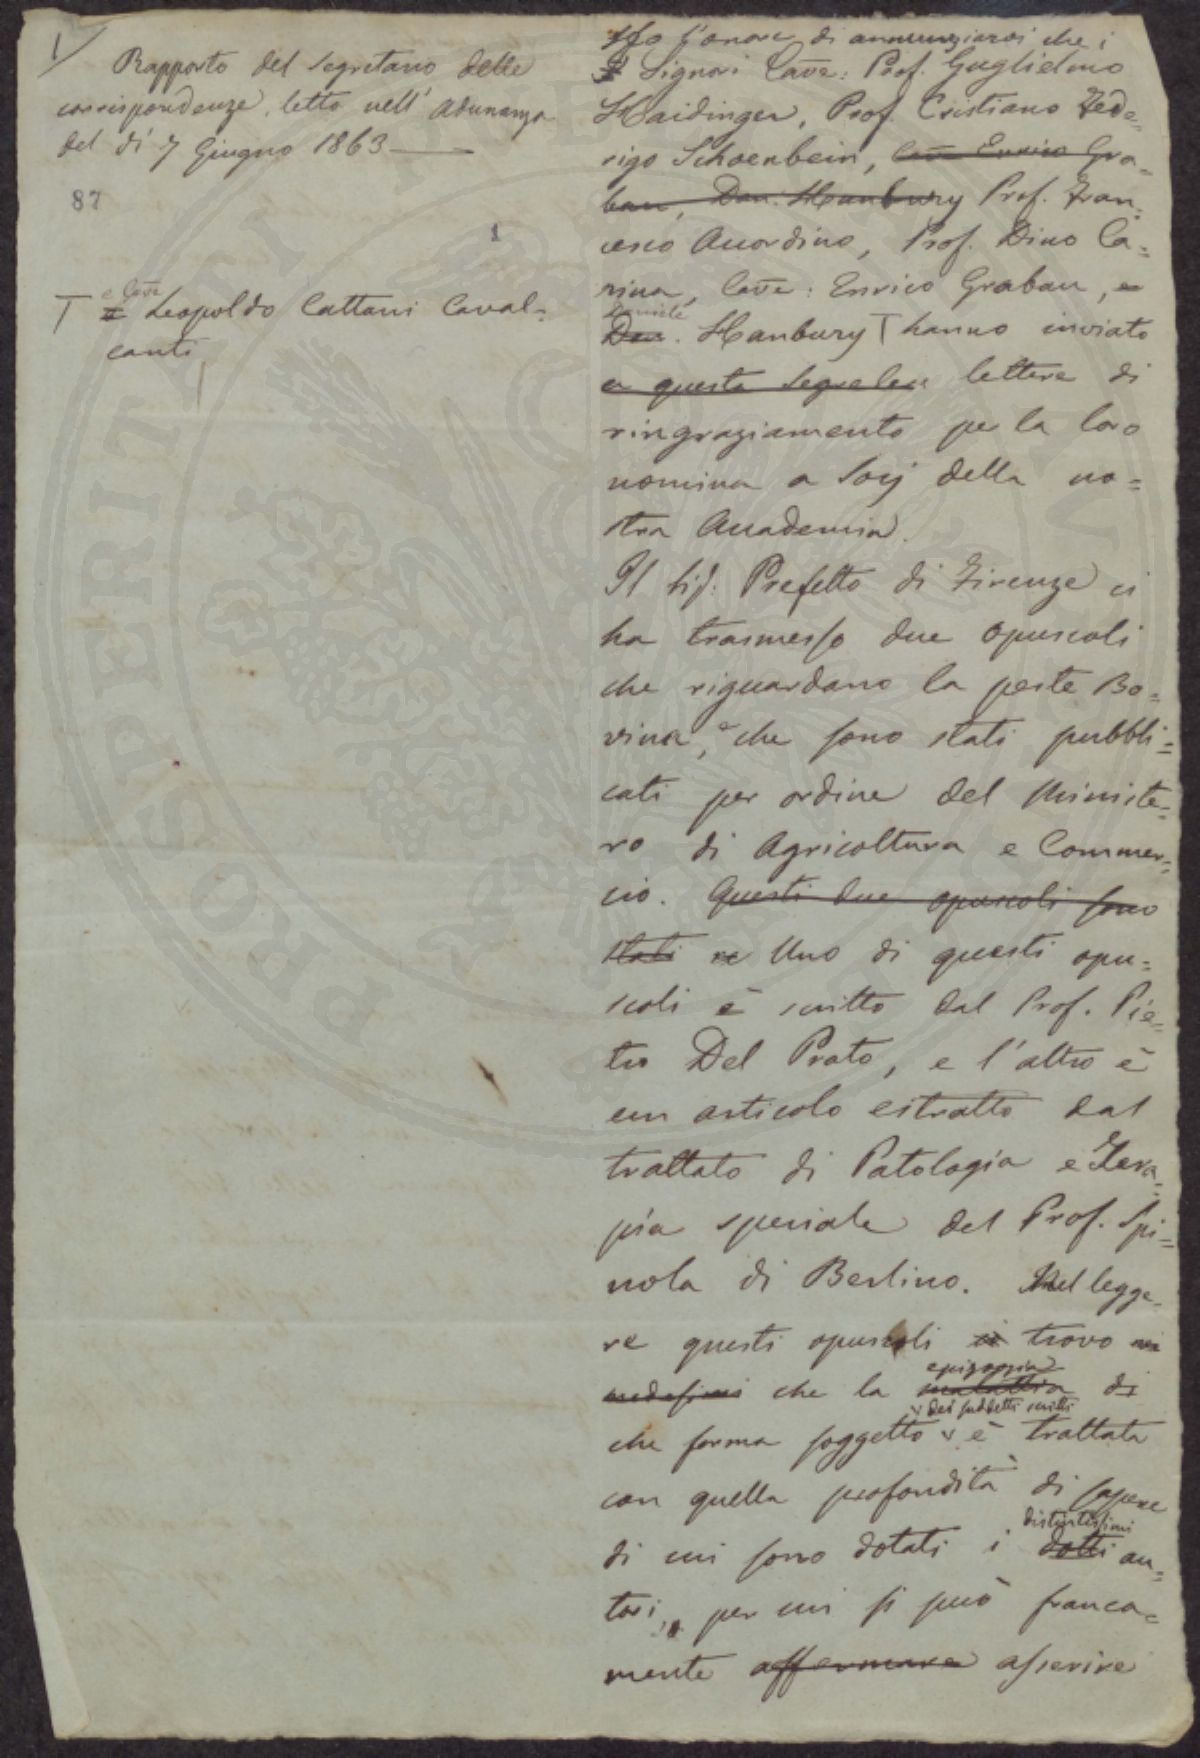 1/
Rapporto del Segretario delle
corrispondenze letto nell' Adunanza
del dì 7 Giugno 1863
87
1
T e Cave
Leopoldo Cattani Caval=
canti
Ho l'onore di annunziarvi che i
Signori Cave: Prof. Guglielmo
Haidinger, Prof. Cristiano Fede=
rigo Schoenbein, Cave Enrico Gra=
bau, Dan. Hanbury Prof. Fran=
cesco Accordino, Prof. Dino Ca=
rina, Cave: Enrico Grabau, e
Daniele
Dan. Hanbury T hanno inviato
a questa Segreteria lettere di
ringraziamento per la loro
nomina a Socj della no=
stra Accademia.
Il Sig: Prefetto di Firenze ci
ha trasmesso due opuscoli
che riguardano la peste Bo=
vina, e che sono stati pubbli=
cati per ordine del Ministe=
ro di Agricoltura e Commer=
cio. Questi due opuscoli sono
stati re Uno di questi opu=
scoli è scritto dal Prof. Pie=
tro Del Prato, e l'altro è
un articolo estratto dal
trattato di Patologia e Tera=
pia speciale del Prof. Spi=
nola di Berlino. Nel legge=
re questi opuscoli si trovo
medesimi che la malattia di
epizoozia
v dei suddetti scritti
che forma soggetto v è trattata
con quella profondità di sapere
distintissimi
di cui sono dotati i dotti au=
tori, per cui si può franca=
mente affermare asserire